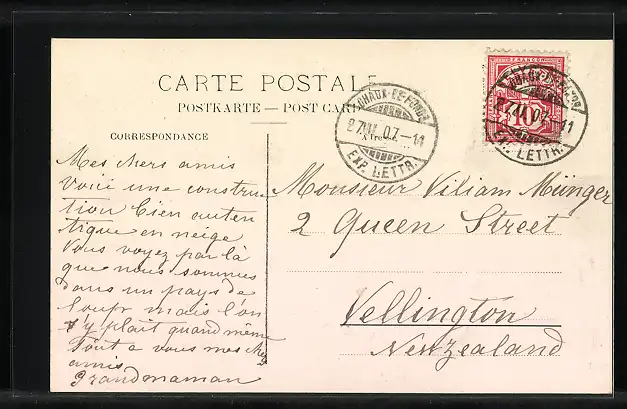 CARTE POSTALE
POSTKARTE — POST CARD
CORRESPONDANCE
FRANCO
10
CHAUX-DE-FONDS
27.II.07.-11
EXP. LETTR.
Mes chers amis
voici une construc
tion bien auten
tique en neige
Vous voyez par là
que nous sommes
dans un pays de
loups mais l'on
s'y plait quand même
Tout a vous mes chers
amis
Grandmaman
Monsieur Viliam Münger
2 Queen Street
Vellington
Newzealand